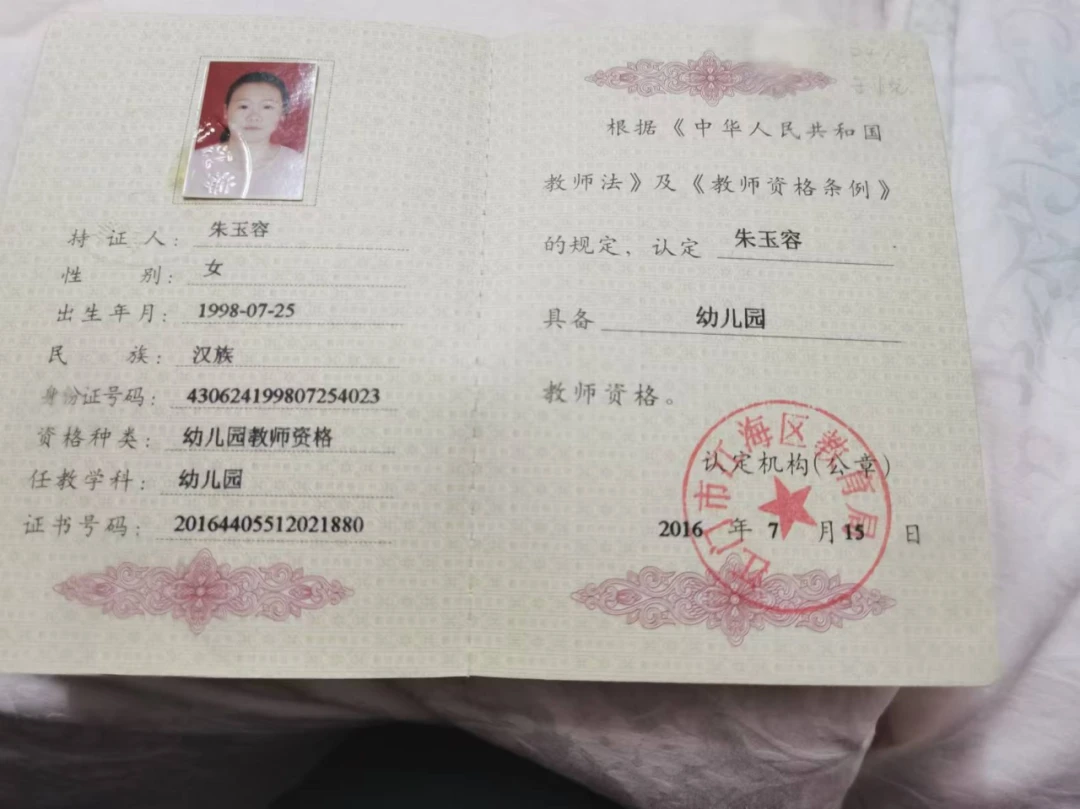 持证人：朱玉容
性别：女
出生年月：1998-07-25
民族：汉族
身份证号码：430624199807254023
资格种类：幼儿园教师资格
任教学科：幼儿园
证书号码：20164405512021880
根据《中华人民共和国
教师法》及《教师资格条例》
的规定，认定 朱玉容
具备 幼儿园
教师资格。
认定机构(公章)
2016 年 7 月 15 日
江门市江海区教育局